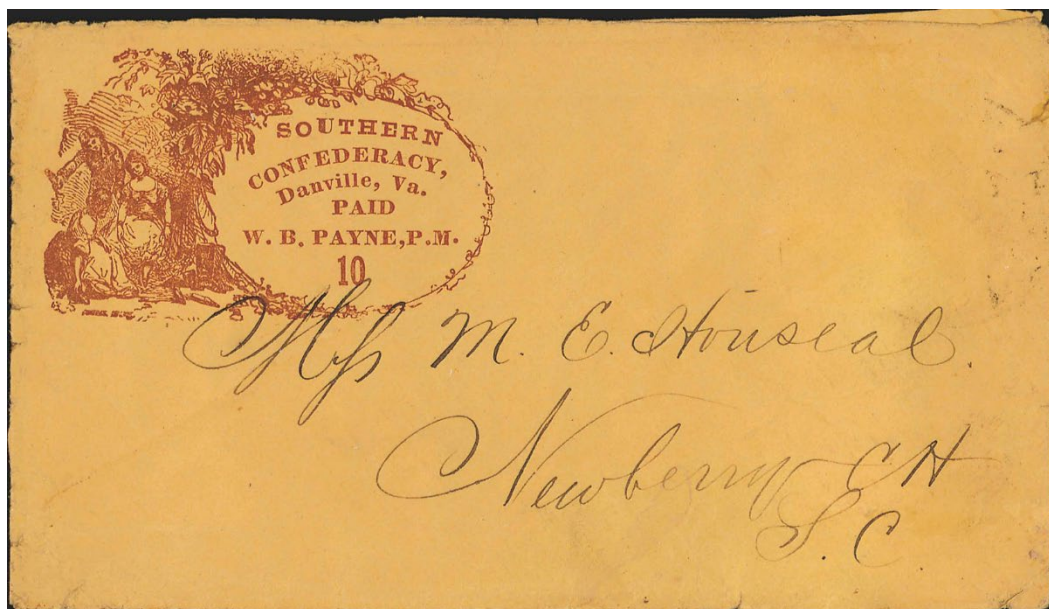 SOUTHERN
CONFEDERACY,
Danville, Va.
PAID
W. B. PAYNE, P.M.
10
Miss M. E. Houseal.
Newberry C H
S. C.